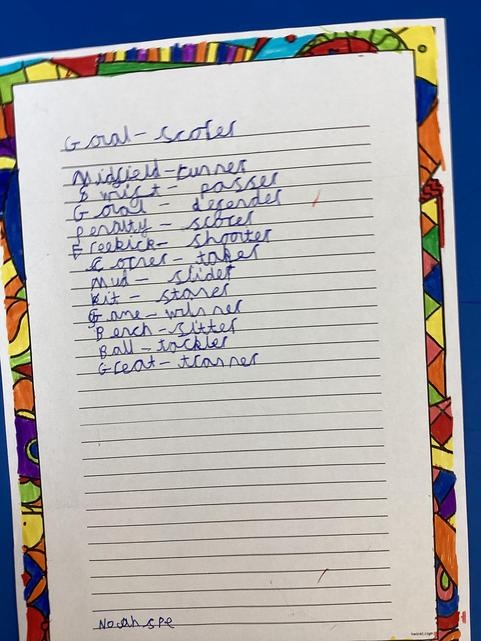 Goal - scorer
Midfield - runner
B wrist - passer
Goal - defender
penalty - scorer
Freekick - shooter
Corner - taker
Mud - slider
Kit - starer
Game - winner
Bench - sitter
Ball - tackler
Great - trainer
Noah spe